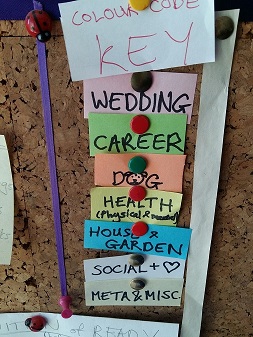 COLOUR CODE
KEY
WEDDING
CAREER
DOG
HEALTH
(Physical & mental)
HOUSE &
GARDEN
SOCIAL + ♡
META & MISC.
OF READY